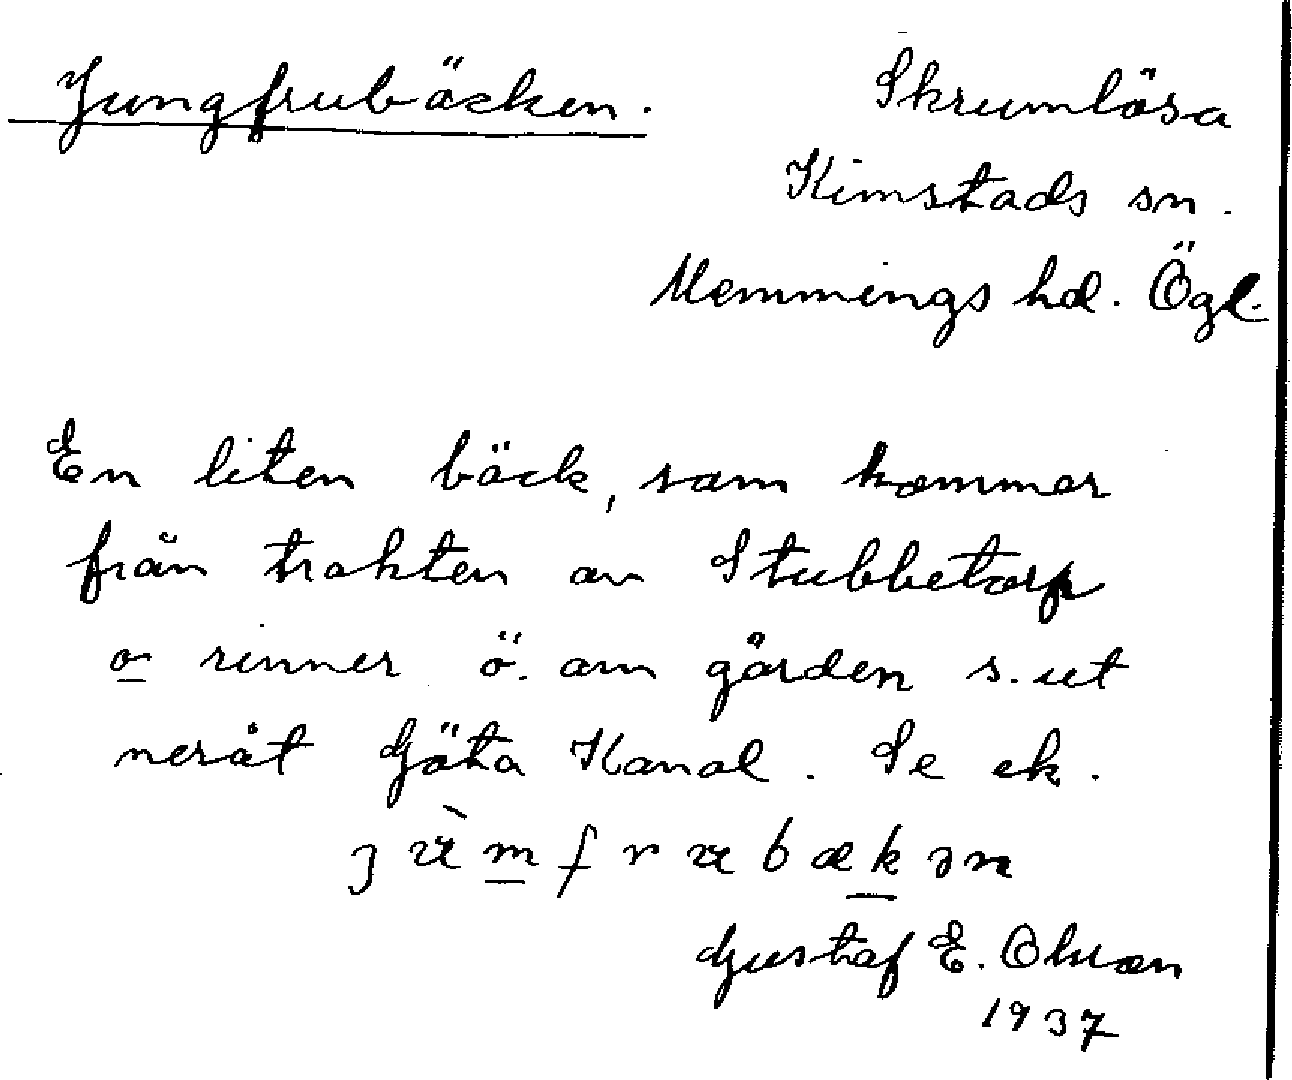 Jungfrubäcken.
Skrumlösa
Kimstads sn.
Memmings hd. Ögl.
En liten bäck, som kommer
från trakten av Stubbetorp
o rinner ö. om gården s. ut
neråt Göta Kanal. Se ek.
Gustaf E. Olsson
1937